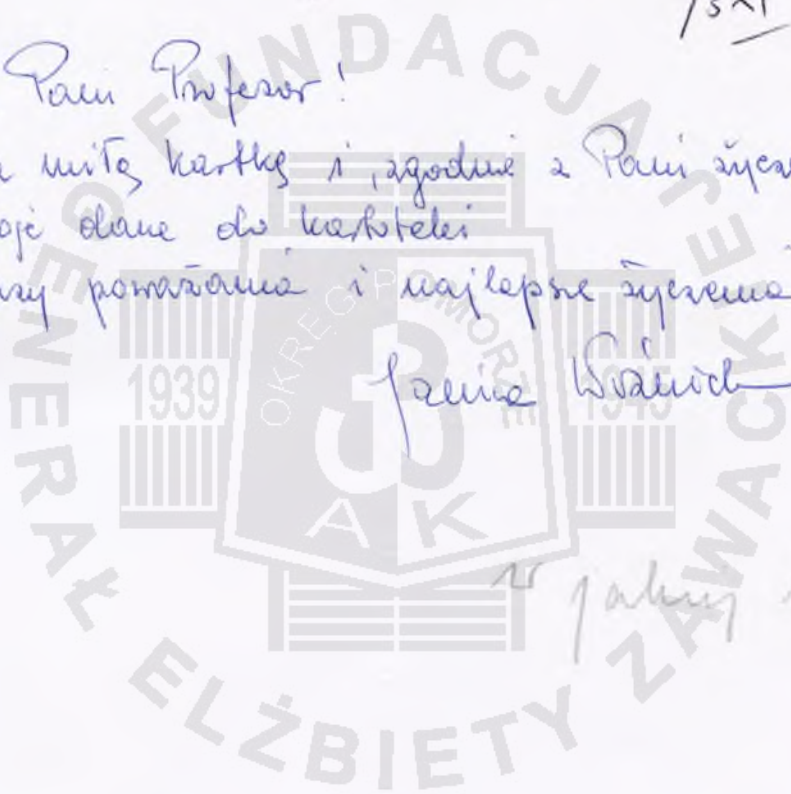 Pani Profesor!
miłą kartkę i, zgodnie z Pani
dane do kartoteki
poważania i najlepsze życzenia
Janina Woźnick
w jakiej
FUNDACJA GENERAŁ ELŻBIETY ZAWACKIEJ
OKRĘG POMORZE
1939 1945
3
AK